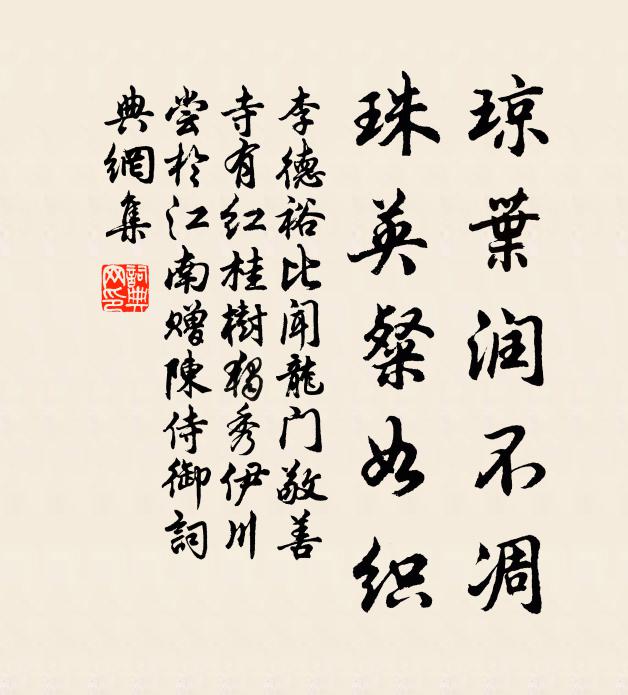 琼葉润不凋
珠英粲如织
李德裕比闻龍门敬善
寺有红桂樹獨秀伊川
尝於江南赠陳侍御詞
典網集
詞典
网印